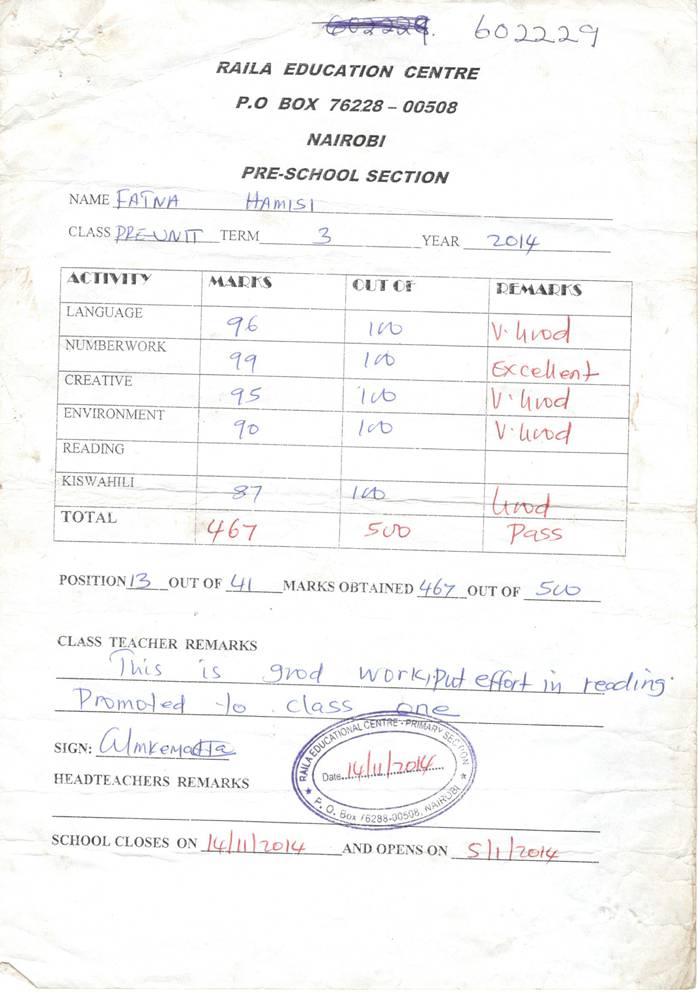 602229. 602229
RAILA EDUCATION CENTRE
P.O BOX 76228 – 00508
NAIROBI
PRE-SCHOOL SECTION
NAME FATNA HAMISI
CLASS PRE-UNIT TERM 3 YEAR 2014
ACTIVITY MARKS OUT OF REMARKS
LANGUAGE 96 100 V. Good
NUMBERWORK 99 100 Excellent
CREATIVE 95 100 V. Good
ENVIRONMENT 90 100 V. Good
READING
KISWAHILI 87 100 Good
TOTAL 467 500 Pass
POSITION 13 OUT OF 41 MARKS OBTAINED 467 OUT OF 500
CLASS TEACHER REMARKS
This is good work, put effort in reading.
Promoted to class one
SIGN:
RAILA EDUCATIONAL CENTRE - PRIMARY SECTION
Date 14/11/2014
P. O. Box 76288-00508, NAIROBI
HEADTEACHERS REMARKS
SCHOOL CLOSES ON 14/11/2014 AND OPENS ON 5/1/2014